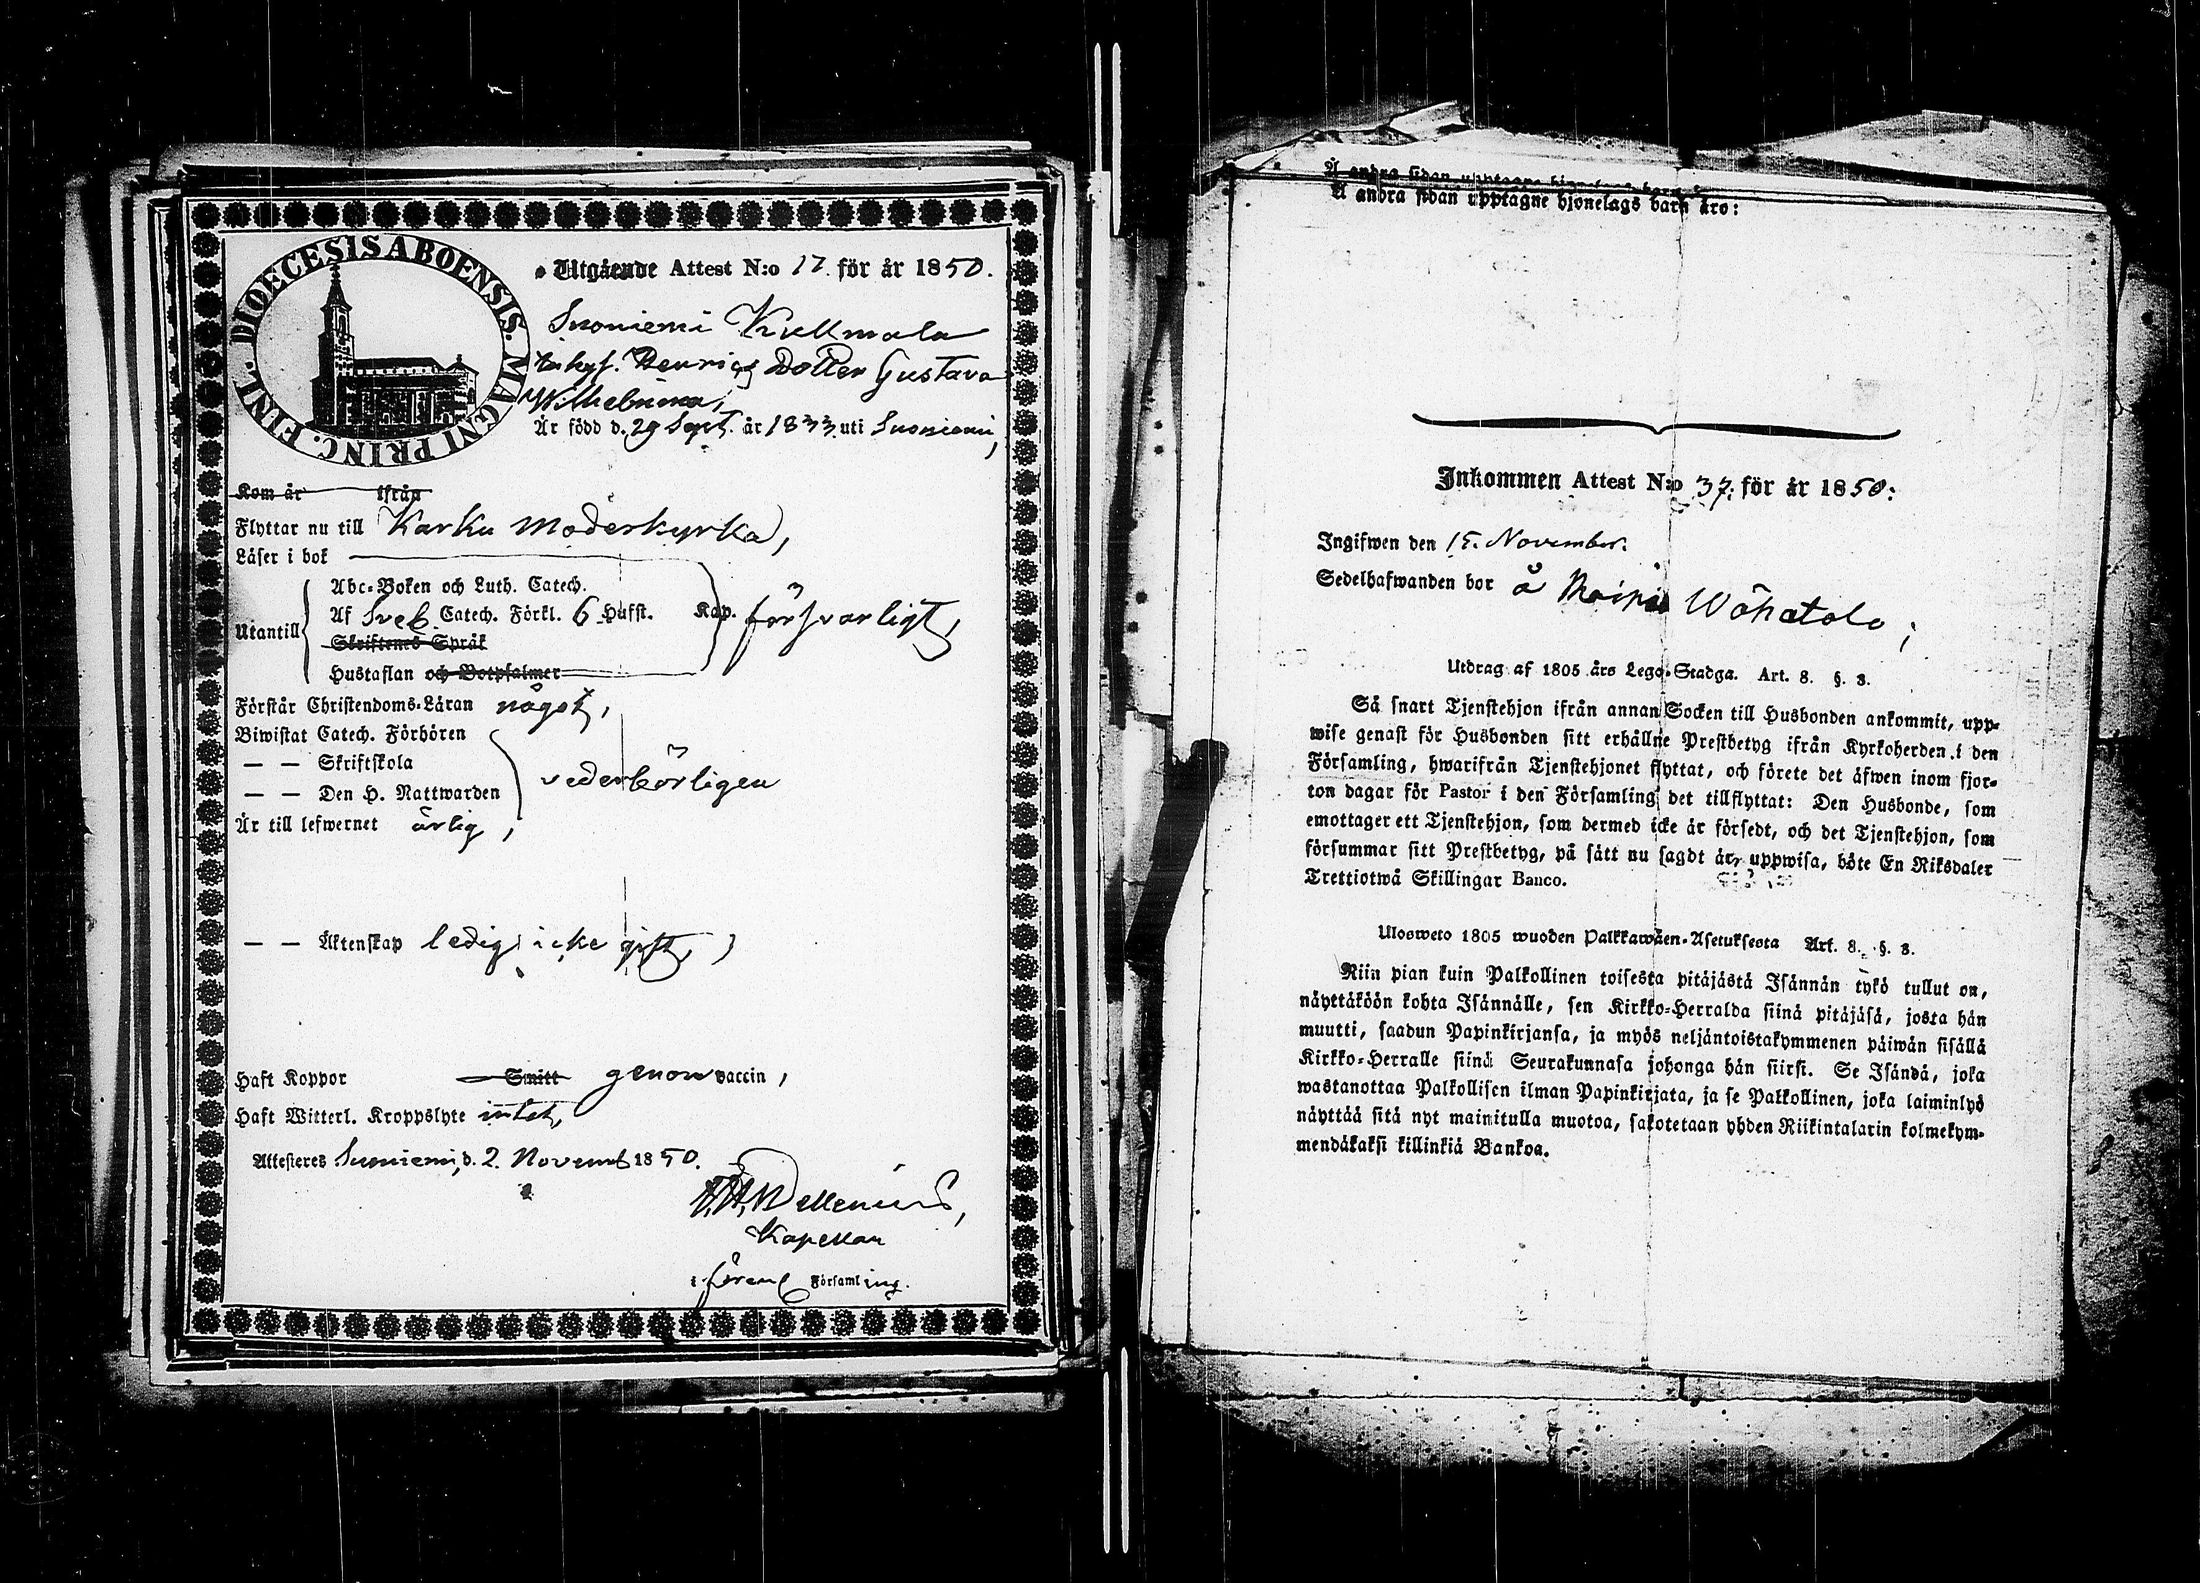 DIOECESIS ABOENSIS. MAGNI PRINC. FINL.
Utgående Attest N:o 17. för år 1850.
Suoniemi Kullmala
Inhys. Henrics Dotter Gustava
Wilhelmina,
Är född d. 29 Sept. år 1833. uti Suoniemi,
Kom år ifrån
Flyttar nu till Karku Moderkyrka,
Läser i bok
Utantill
Abc-Boken och Luth. Catech.
Af Sveb. Catech. Förkl. 6 Hufst. Kap. försvarligt,
Skriftenes Språk
Hustaflan och Botpsalmer
Förstår Christendoms-Läran något,
Biwistat Catech. Förhören
— — Skriftskola
— — Den H. Nattwarden vederbörligen
Är till lefwernet ärlig,
— — Äktenskap ledig icke gift,
Haft Koppor Smitt genom vaccin,
Haft Witterl. Kroppslyte intet,
Attesteras Suoniemi, d. 2. Novemb 1850.
Kapellan
i förend Församling.
Å andra sidan upptagne hjonelags barn äro:
Å andra sidan upptagne hjonelags barn äro:
Inkommen Attest N:o 37: för år 1850:
Ingifwen den 15. November.
Sedelhafwanden bor å Wähatalo;
Utdrag af 1805 års Lego-Stadga. Art. 8. §. 3.
Så snart Tjenstehjon ifrån annan Socken till Husbonden ankommit, upp-
wise genast för Husbonden sitt erhållne Prestbetyg ifrån Kyrkoherden i den
Församling, hwarifrån Tjenstehjonet flyttat, och förete det äfwen inom fjor-
ton dagar för Pastor i den Församling det tillflyttat: Den Husbonde, som
emottager ett Tjenstehjon, som dermed icke är försedt, och det Tjenstehjon, som
försummar sitt Prestbetyg, på sätt nu sagdt är, uppwisa, böte En Riksdaler
Trettiotwå Skillingar Banco.
Ulosweto 1805 wuoden Palkkawäen-Asetuksesta Art. 8. §. 3.
Niin pian kuin Palkollinen toisesta pitäjästä Isännän tykö tullut on,
näyttäköön kohta Isännälle, sen Kirkko-Herralda siinä pitäjäsä, josta hän
muutti, saadun Papinkirjansa, ja myös neljäntoistakymmenen päiwän sisällä
Kirkko-Herralle siinä Seurakunnasa johonga hän siirsi. Se Isändä, joka
wastanottaa Palkollisen ilman Papinkirjata, ja se Palkollinen, joka laiminlyö
näyttää sitä nyt mainitulla muotoa, sakotetaan yhden Riikintalarin kolmekym-
mendäkaksi killinkiä Bankoa.